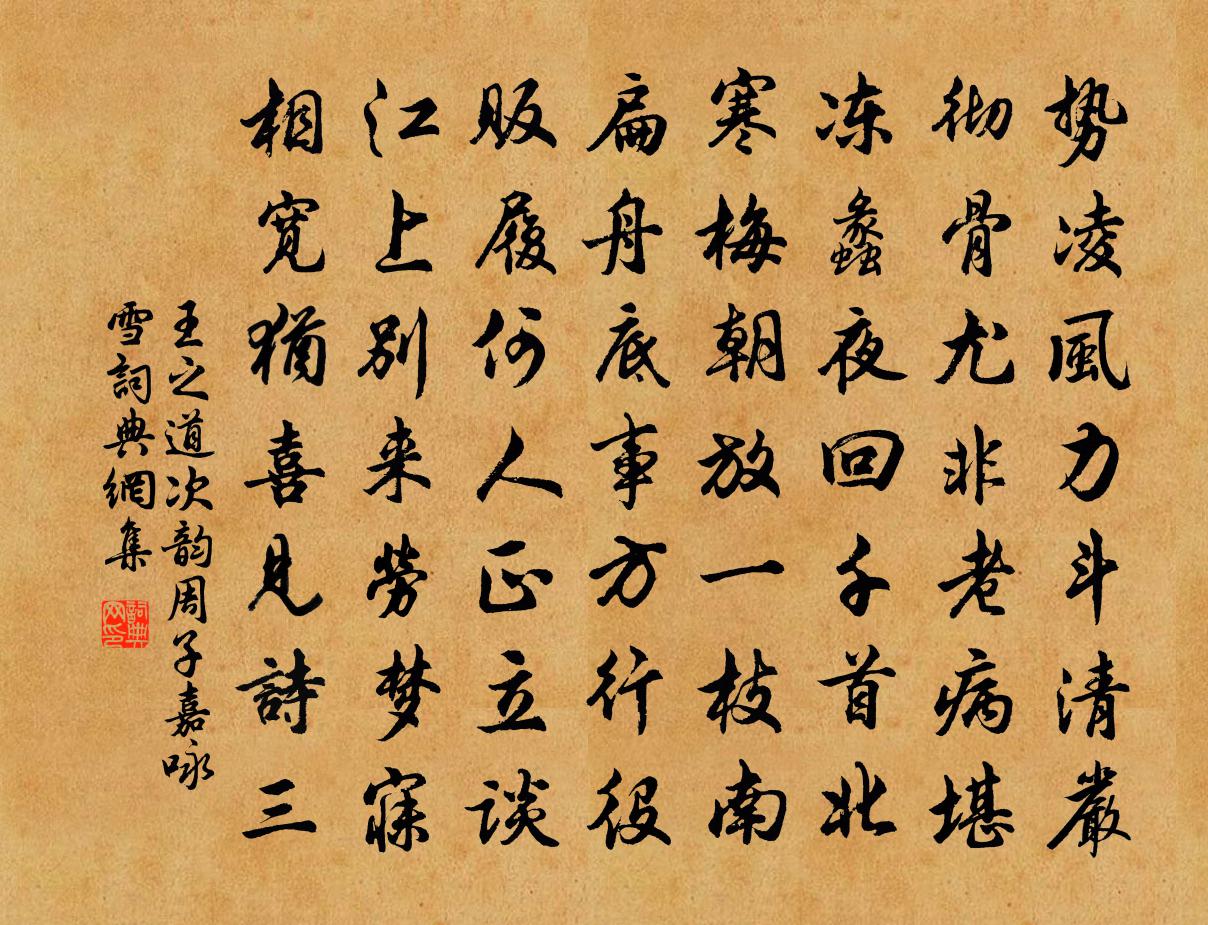 势凌風力斗清嚴
彻骨尤非老病堪
冻蠡夜回千首北
寒梅朝放一枝南
扁舟底事方行役
贩履何人正立谈
江上别来勞梦寐
相寛猶喜見詩三
王之道次韵周子嘉咏
雪詞典網集
詞典网印